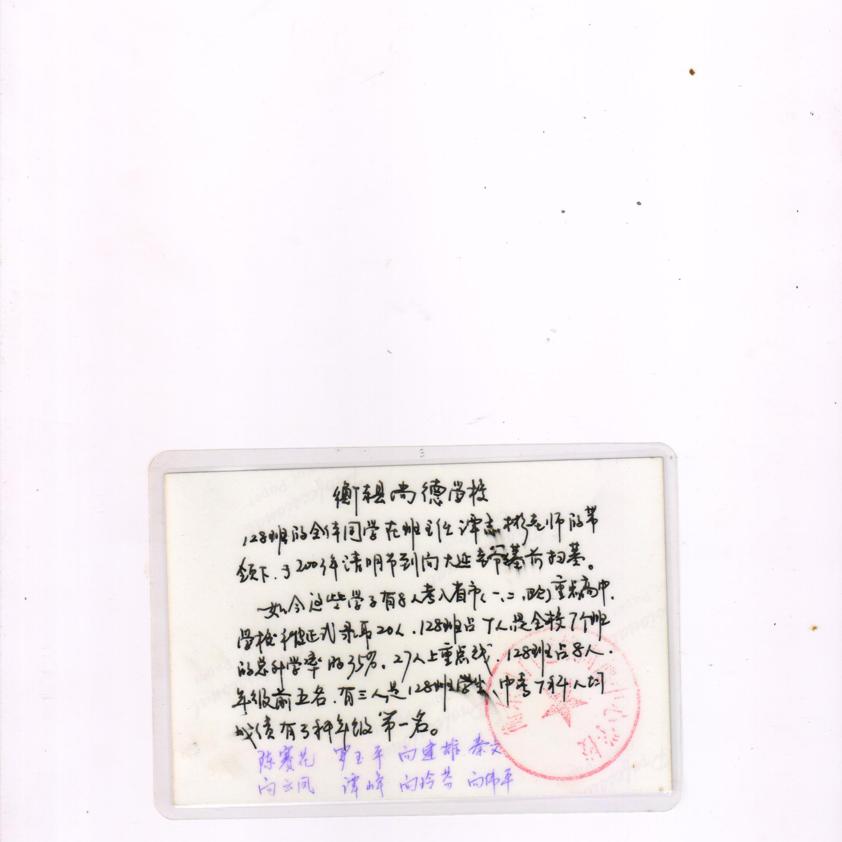 衡东县尚德学校
128班的全体同学在班主任谭志彬老师的带
领下,于200年清明节到向大进爷爷墓前扫墓。
如今这些学子有8人考入省市(一、二、)重点高中,
学校被正式录取20人,128班占7人是全校7个班
的总升学率的35%,27人上重点线,128班占8人,
年级前五名,有三人是128班学生、中考7科人均
成绩有3科年级第一名。
陈赛花 罗玉平 向建雄 秦文
向云凤 谭峰 向玲芳 向伟平